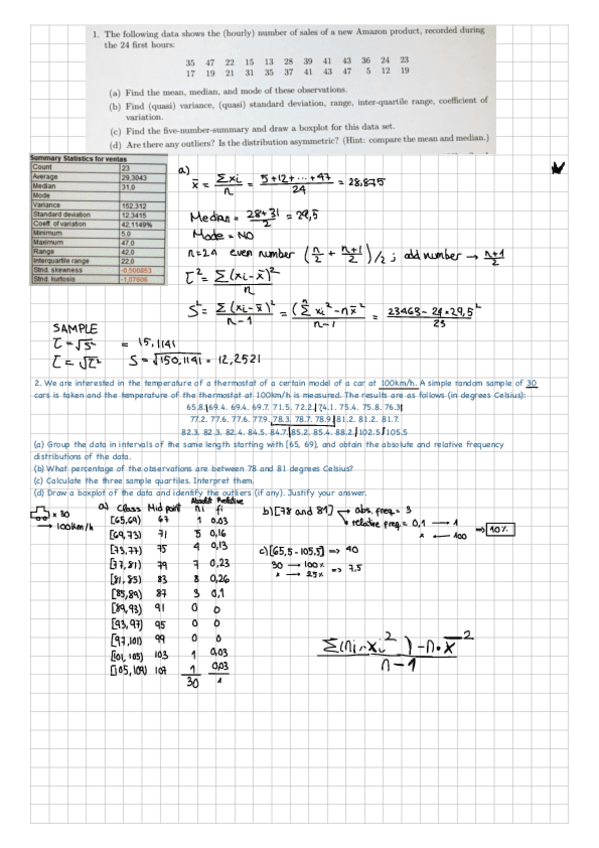 1. The following data shows the (hourly) number of sales of a new Amazon product, recorded during
the 24 first hours:
35 47 22 15 13 28 39 41 43 36 24 23
17 19 21 31 35 37 41 43 47 5 12 19
(a) Find the mean, median, and mode of these observations.
(b) Find (quasi) variance, (quasi) standard deviation, range, inter-quartile range, coefficient of
variation.
(c) Find the five-number-summary and draw a boxplot for this data set.
(d) Are there any outliers? Is the distribution asymmetric? (Hint: compare the mean and median.)
Summary Statistics for ventas
Count 23
Average 29,3043
Median 31,0
Mode
Variance 152,312
Standard deviation 12,3415
Coeff. of variation 42,1149%
Minimum 5,0
Maximum 47,0
Range 42,0
Interquartile range 22,0
Stnd. skewness -0,500853
Stnd. kurtosis -1,07606
a)
x̄ = Σxi/n = 5+12+...+47/24 = 28,875
Median = 28+31/2 = 29,5
Mode = NO
n=24 even number (n/2 + n+1/2)/2 ; odd number → n+1/2
τ² = Σ(xi-x̄)²/n
S² = Σ(xi-x̄)²/n-1 = (Σxi²-nx̄²/n-1 = 23468-24*29,5²/23
SAMPLE
τ=√S² = 15,1141
τ=√τ² S=√150,1141 = 12,2521
2. We are interested in the temperature of a thermostat of a certain model of a car at 100km/h. A simple random sample of 30
cars is taken and the temperature of the thermostat at 100km/h is measured. The results are as follows (in degrees Celsius):
65.8. 69.4. 69.4. 69.7. 71.5. 72.2. 74.1. 75.4. 75.8. 76.3.
77.2. 77.6. 77.6. 77.9. 78.3. 78.7. 78.9. 81.2. 81.2. 81.7.
82.3. 82.3. 82.4. 84.5. 84.7. 85.2. 85.4. 88.2. 102.5. 105.5
(a) Group the data in intervals of the same length starting with [65, 69], and obtain the absolute and relative frequency
distributions of the data.
(b) What percentage of the observations are between 78 and 81 degrees Celsius?
(c) Calculate the three sample quartiles. Interpret them.
(d) Draw a boxplot of the data and identify the outliers (if any). Justify your answer.
x 30
→ 100km/h
a) Class Mid point ni fi
Relative
[65,69) 67 1 0,03
[69,73) 71 5 0,16
[73,77) 75 4 0,13
[77,81) 79 7 0,23
[81,85) 83 8 0,26
[85,89) 87 3 0,1
[89,93) 91 0 0
[93,97) 95 0 0
[97,101) 99 0 0
[101,105) 103 1 0,03
[105,109) 107 1 0,03
30 1
b) [78 and 81] → abs. freq. = 3
→ relative freq. = 0,1 → 1
x ← 100 ⇒ 10%
c) [65,5-105,5] ⇒ 40
30 → 100%
x → 25% ⇒ 7,5
Σ(ni·xi²)-n·x̄²/n-1